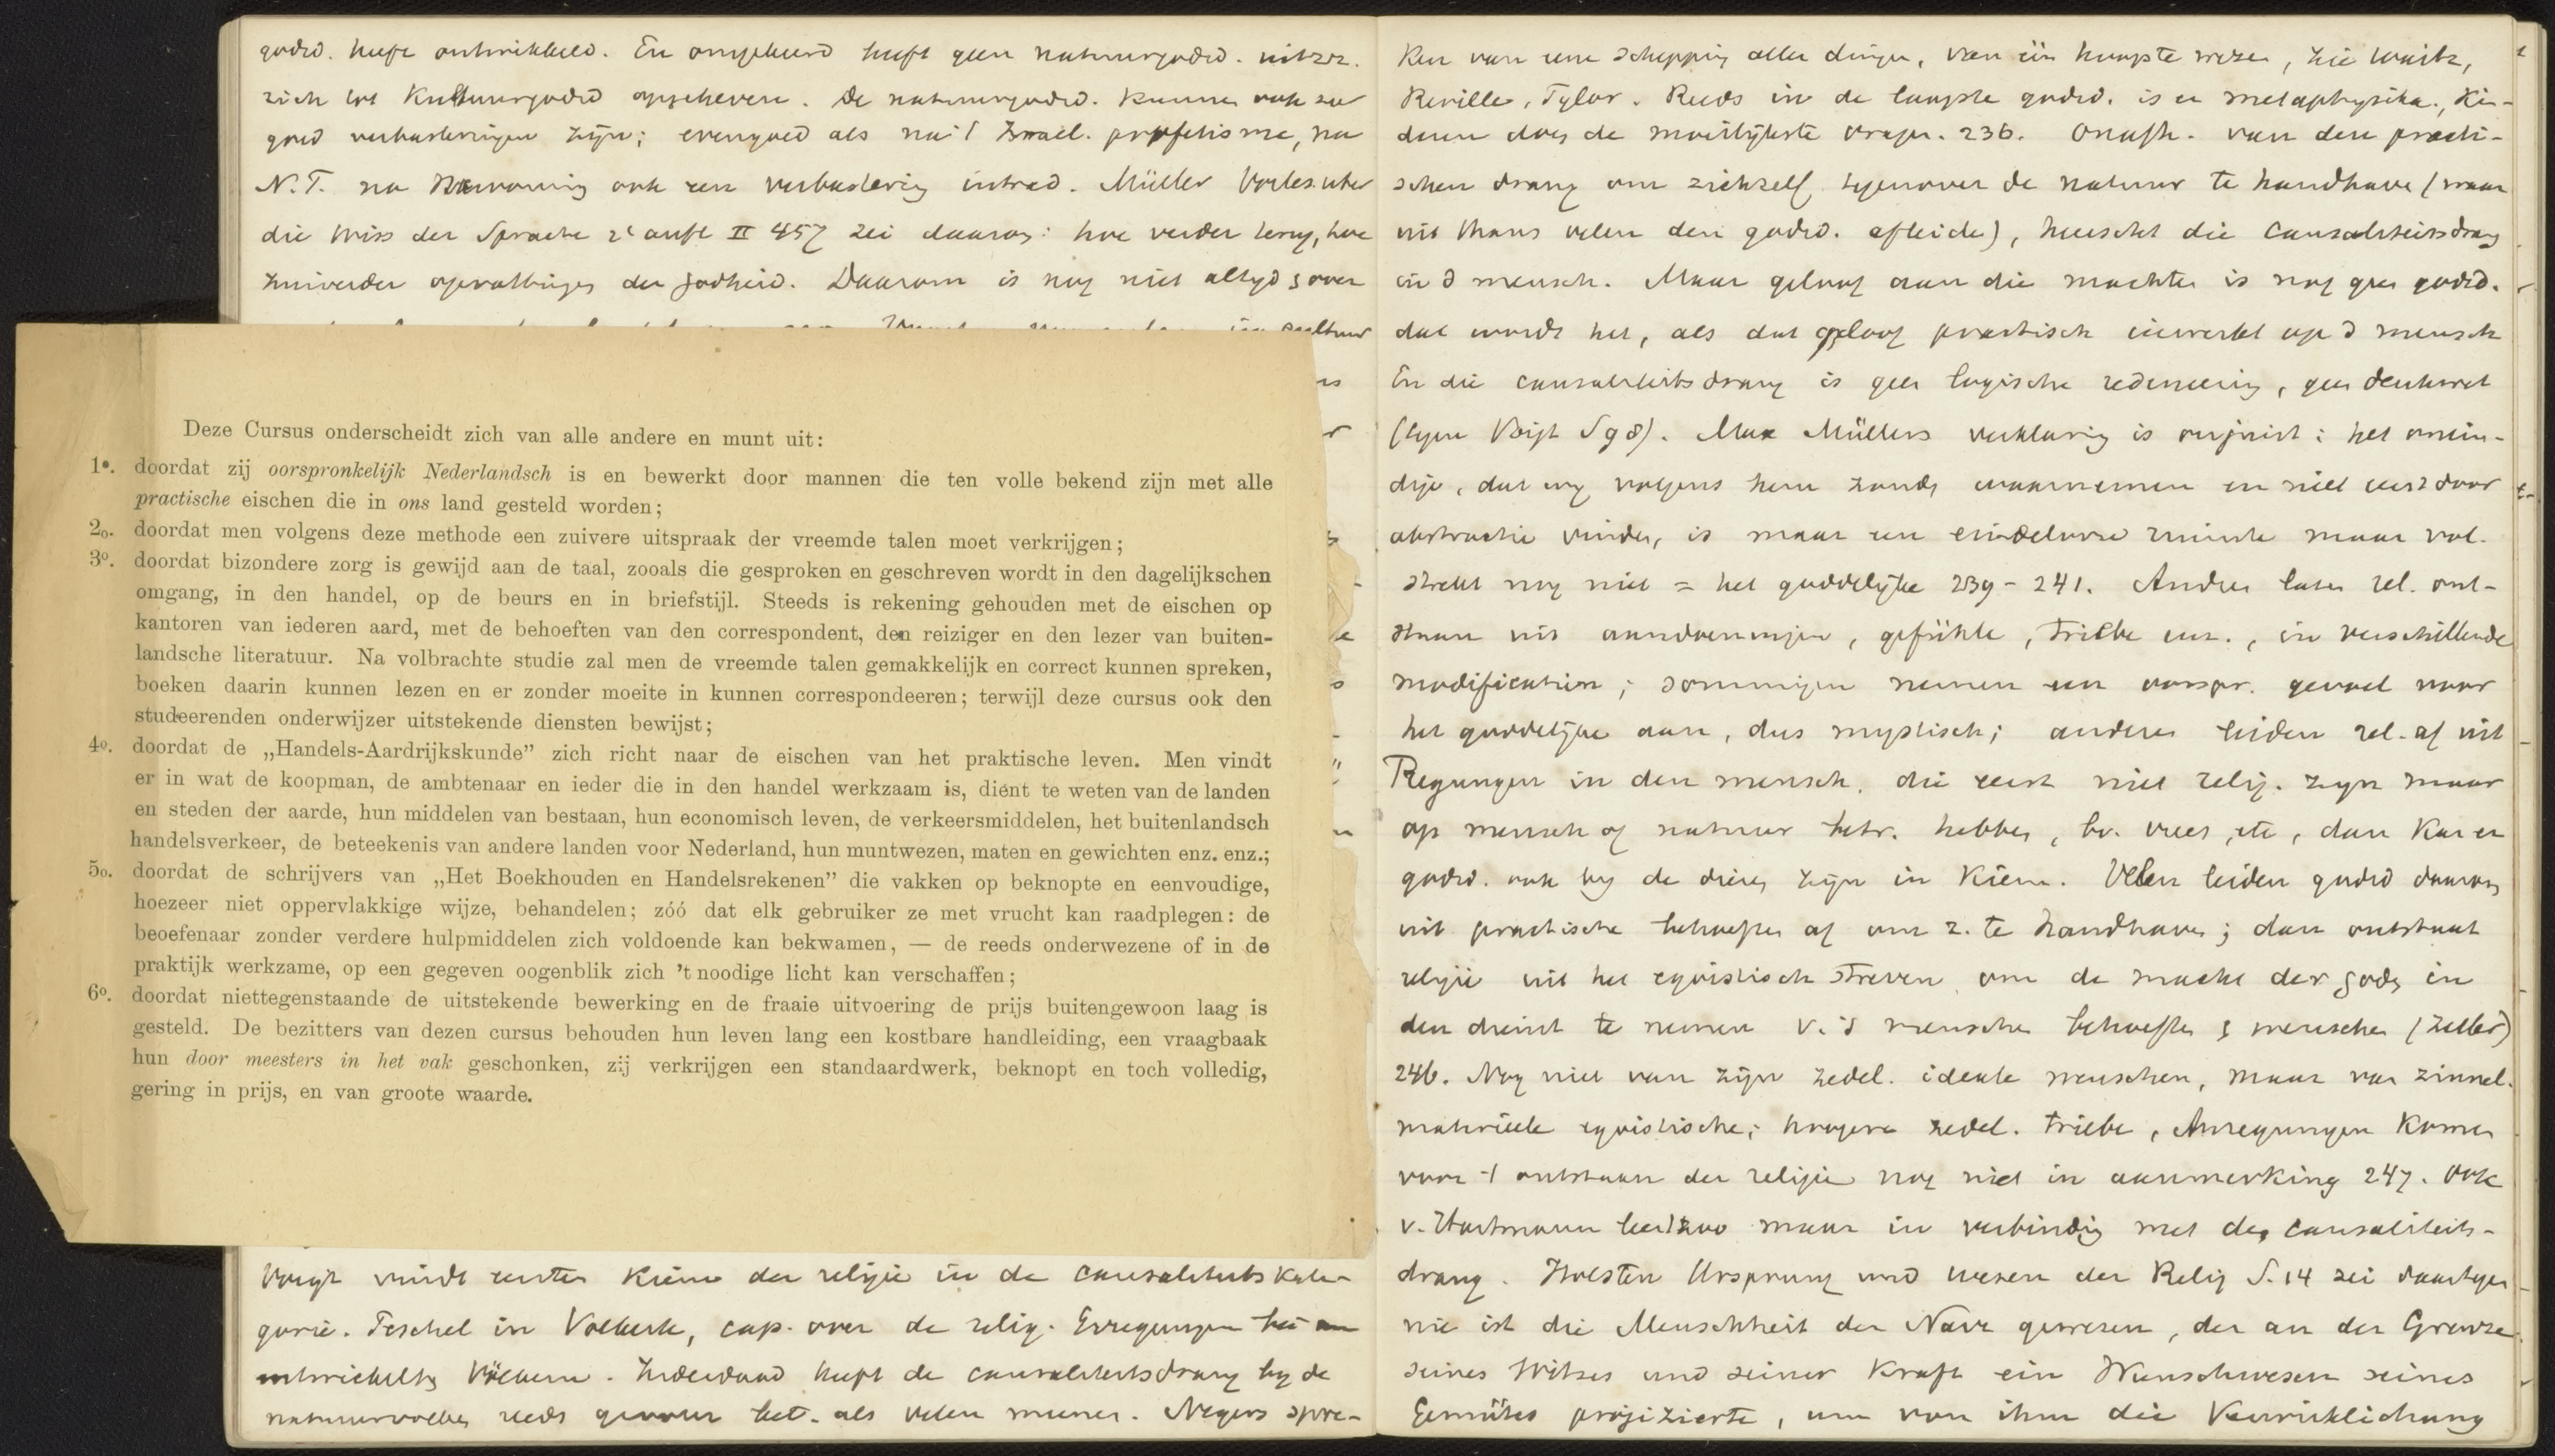 godsd. heeft ontwikkeld. En omgekeerd heeft geen natuurgodsd. uitzz.
zich tot Kultuurgodsd opgeheven. De natuurgodsd. kunnen ook zeer
goed verbasteringen zijn; evengoed als na 't Israel. profetisme, na
N.T. na Hervorming ook een verbastering intrad. Müller Vorles. uber
die Wiss der Sprache 2e aufl II 457 zei daarom: hoe verder terug, hoe
zuiverder opvattingen der godheid. Daarom is nog niet altijd s over
cultuur
Deze Cursus onderscheidt zich van alle andere en munt uit:
1o. doordat zij oorspronkelijk Nederlandsch is en bewerkt door mannen die ten volle bekend zijn met alle
practische eischen die in ons land gesteld worden;
2o. doordat men volgens deze methode een zuivere uitspraak der vreemde talen moet verkrijgen;
3o. doordat bizondere zorg is gewijd aan de taal, zooals die gesproken en geschreven wordt in den dagelijkschen
omgang, in den handel, op de beurs en in briefstijl. Steeds is rekening gehouden met de eischen op
kantoren van iederen aard, met de behoeften van den correspondent, den reiziger en den lezer van buiten-
landsche literatuur. Na volbrachte studie zal men de vreemde talen gemakkelijk en correct kunnen spreken,
boeken daarin kunnen lezen en er zonder moeite in kunnen correspondeeren; terwijl deze cursus ook den
studeerenden onderwijzer uitstekende diensten bewijst;
4o. doordat de „Handels-Aardrijkskunde” zich richt naar de eischen van het praktische leven. Men vindt
er in wat de koopman, de ambtenaar en ieder die in den handel werkzaam is, dient te weten van de landen
en steden der aarde, hun middelen van bestaan, hun economisch leven, de verkeersmiddelen, het buitenlandsch
handelsverkeer, de beteekenis van andere landen voor Nederland, hun muntwezen, maten en gewichten enz. enz.;
5o. doordat de schrijvers van „Het Boekhouden en Handelsrekenen” die vakken op beknopte en eenvoudige,
hoezeer niet oppervlakkige wijze, behandelen; zóó dat elk gebruiker ze met vrucht kan raadplegen: de
beoefenaar zonder verdere hulpmiddelen zich voldoende kan bekwamen, — de reeds onderwezene of in de
praktijk werkzame, op een gegeven oogenblik zich 't noodige licht kan verschaffen;
6o. doordat niettegenstaande de uitstekende bewerking en de fraaie uitvoering de prijs buitengewoon laag is
gesteld. De bezitters van dezen cursus behouden hun leven lang een kostbare handleiding, een vraagbaak
hun door meesters in het vak geschonken, zij verkrijgen een standaardwerk, beknopt en toch volledig,
gering in prijs, en van groote waarde.
Voigt vindt eerste kiem der religie in de causaliteitskate-
gorie. Peschel in Volkerk, cap. over de relig. Erregungen bei un
entwickelten Völkern. Inderdaad heeft de causaliteitsdrang by de
natuurvolken reeds grooter bet. als velen meenen. Negers spre-
ken van een schepping aller dingen, van één hoogste wezen, zie Waitz,
Reville, Tylor. Reeds in de laagste godsd. is er metaphysika. Kin-
deren doen de moeilijkste vragen. 236. Onafh. van den practi-
schen drang om zichzelf tegenover de natuur te handhaven (waar
uit thans velen den godsd. afleiden), heerscht die causaliteitsdrang
in d mensch. Maar geloof aan die machten is nog geen godsd.
dat wordt het, als dat geloof practisch inwerkt op d mensch
En die causaliteitsdrang is geen logische redeneering, geen denkwet
(tegen Voigt S 98). Max Müllers verklaring is onjuist: het onein-
dige, dat wy volgens hem zouden waarnemen en niet eerst door
abstractie vinden, is maar een eindelooze ruimte maar vol-
strekt nog niet = het goddelijke 239-241. Andren laten rel. ont-
staan uit aandoeningen, gefühle, triebe enz., in verschillende
modification; sommigen nemen een oorspr. gevoel voor
het goddelijke aan, dus mystisch; anderen leiden rel. af uit
Regungen in den mensch, die eerst niet relig. zyn maar
op mensch of natuur betr. hebben, bv. vrees, etc, dan kan er
godsd. ook by de dieren zijn in kiem. Velen leiden godsd daarom
uit practische behoeften af om z. te handhaven; dan ontstaat
religie uit het egoistisch streven om de macht der goden in
den dienst te nemen v. d menschen behoeften s menschen (Zeller)
246. Nog niet van zijn zedel. ideale menschen, maar van zinnel.
materieele egoistische; hoogere zedel. triebe, Anregungen komen
voor 't ontstaan der religie nog niet in aanmerking 247. Ook
v. Hartmann leert zoo maar in verbinding met den causaliteits-
drang. Holsten Ursprung und wesen der Relig S. 14 zei daartegen
nie ist die Menschheit der Narr gewesen, der an der Grenze
seines Witzes und seiner Kraft ein Wunschwesen seines
Gemütes projizierte, um von ihm die Verwirklichung